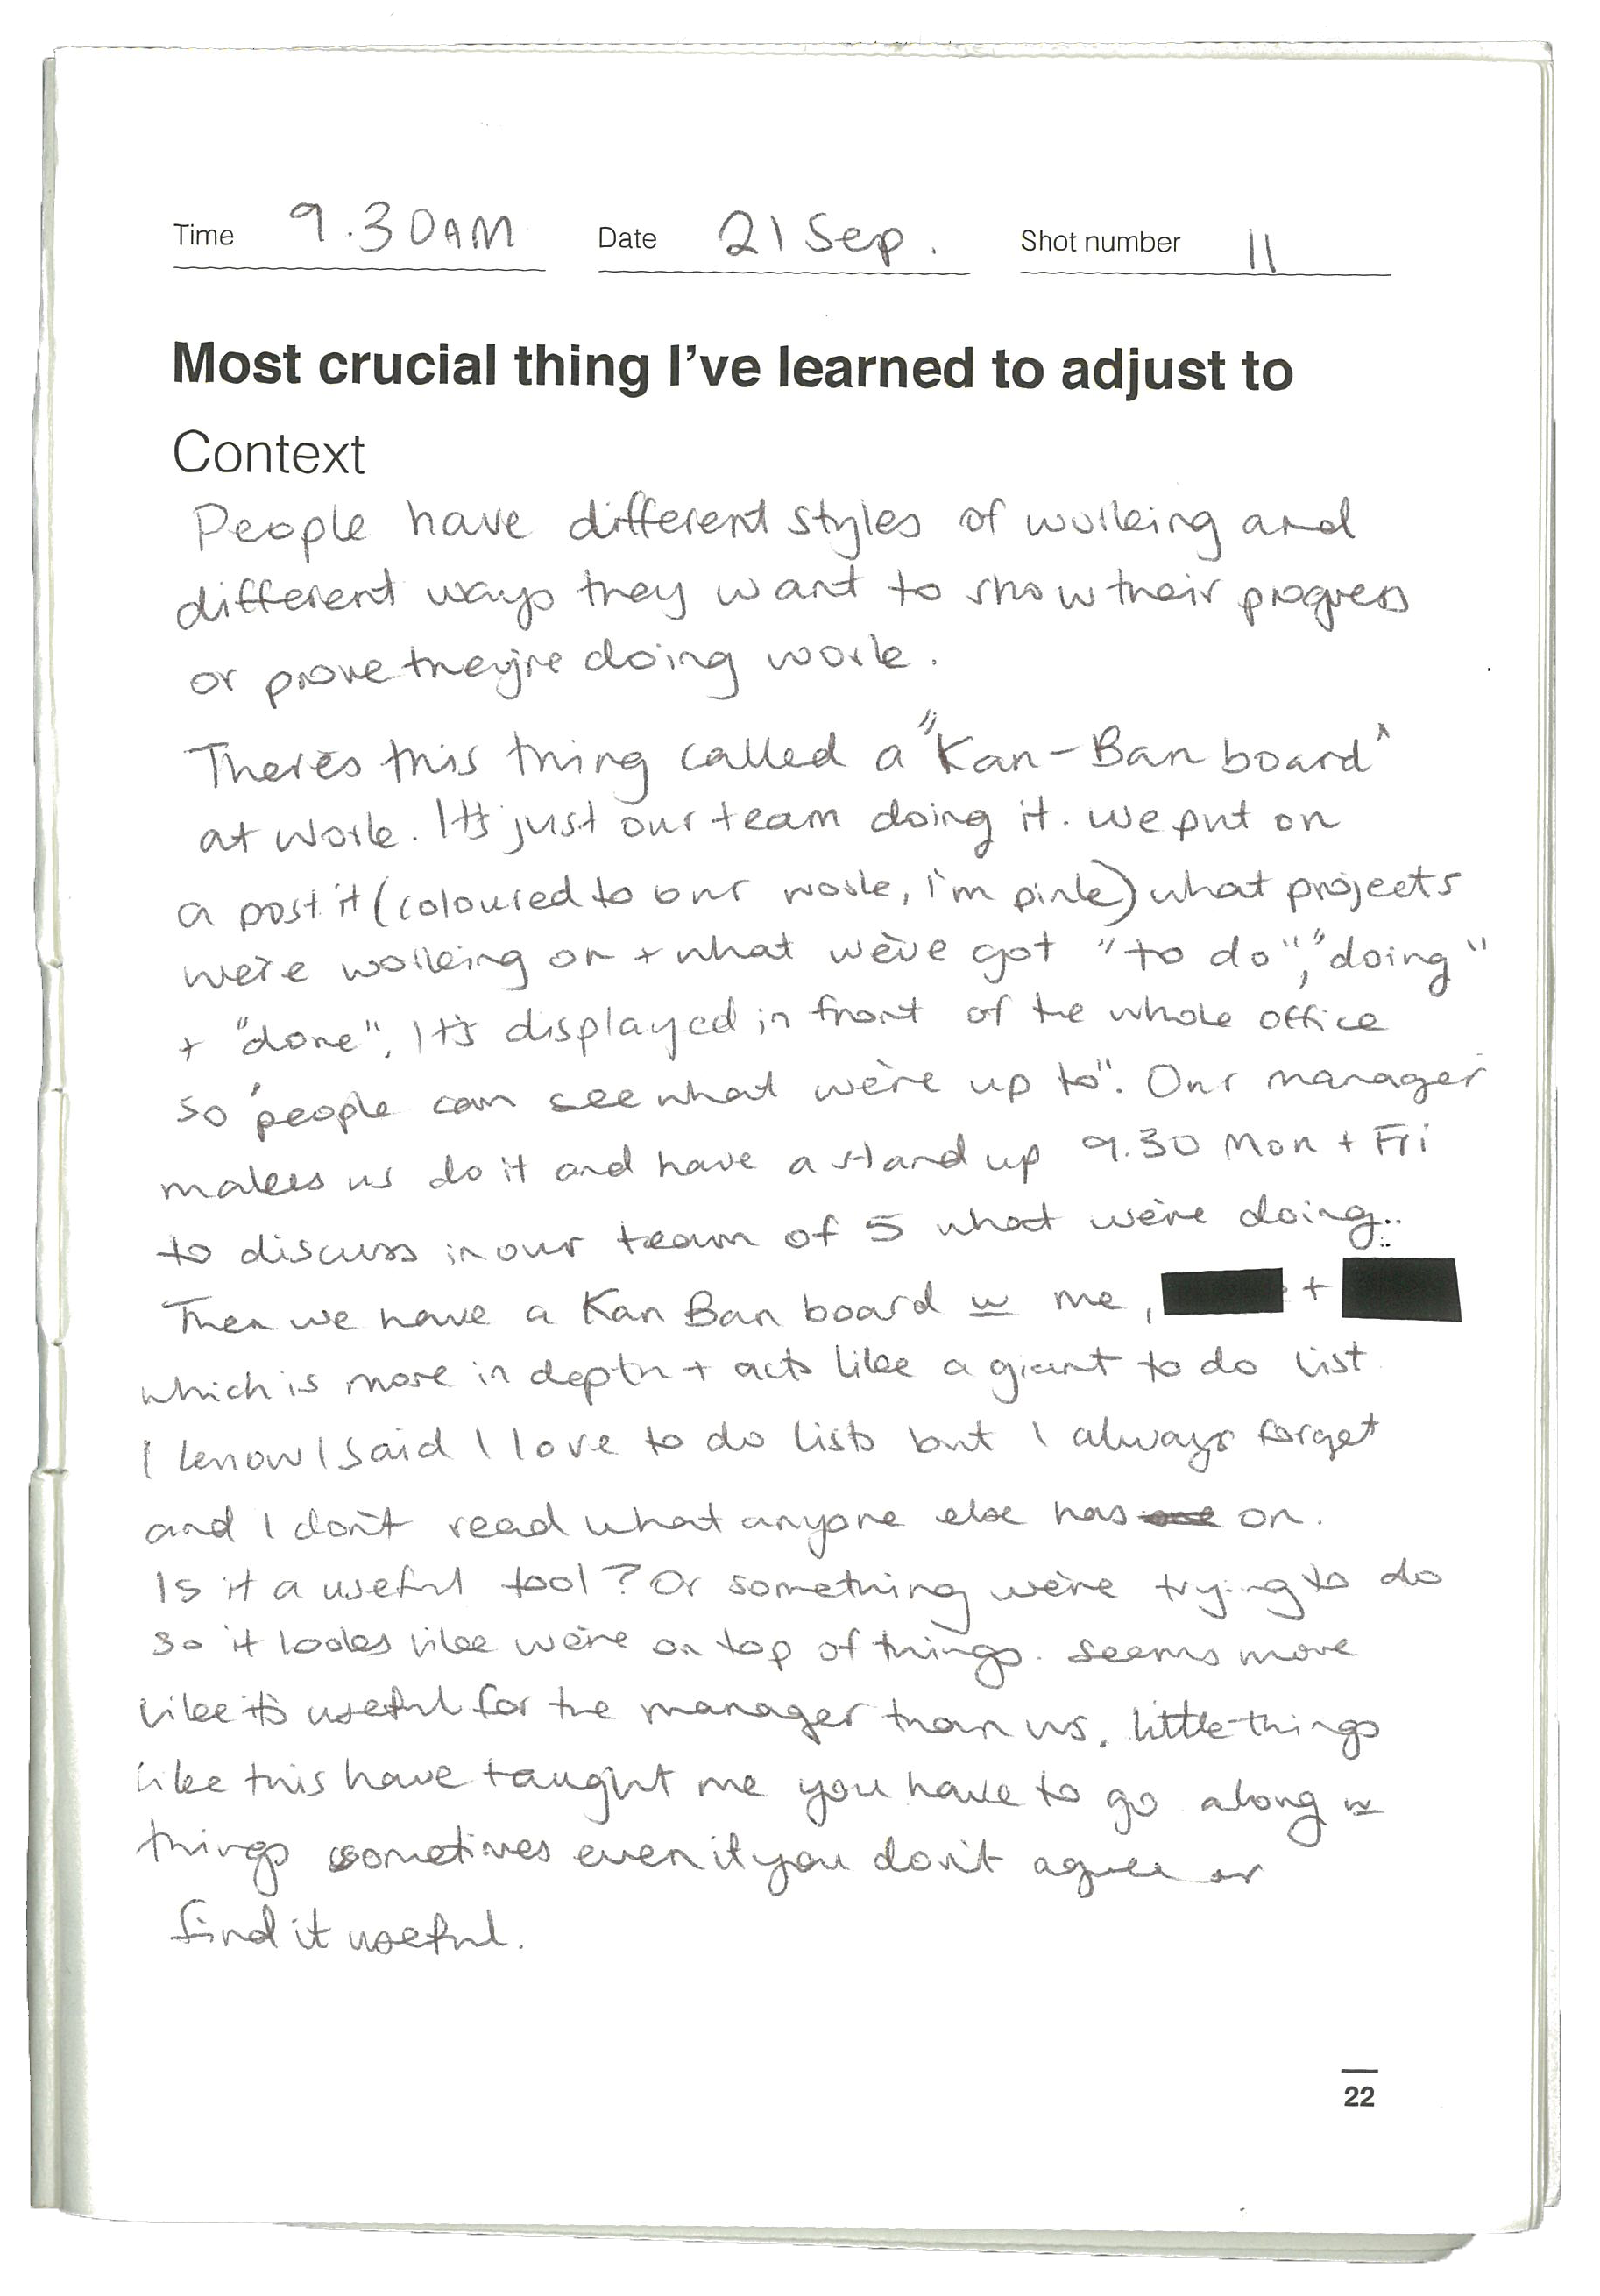 Time 9.30AM Date 21 Sep. Shot number 11
Most crucial thing I've learned to adjust to
Context
People have different styles of working and
different ways they want to show their progress
or prove they're doing work.
There's this thing called a "Kan-Ban board"
at work. It's just our team doing it. We put on
a post it (coloured to our work, I'm pink) what projects
we're working on + what we've got "to do", "doing"
+ "done". It's displayed in front of the whole office
so "people can see what we're up to". Our manager
makes us do it and have a stand up 9.30 Mon + Fri
to discuss in our team of 5 what we're doing..
Then we have a Kan Ban board w me, +
which is more in depth + acts like a giant to do list
I know I said I love to do lists but I always forget
and I don't read what anyone else has on.
Is it a useful tool? Or something we're trying to do
so it looks like we're on top of things. Seems more
like it's useful for the manager than us. Little things
like this have taught me you have to go along w
things sometimes even if you don't agree or
find it useful.
22